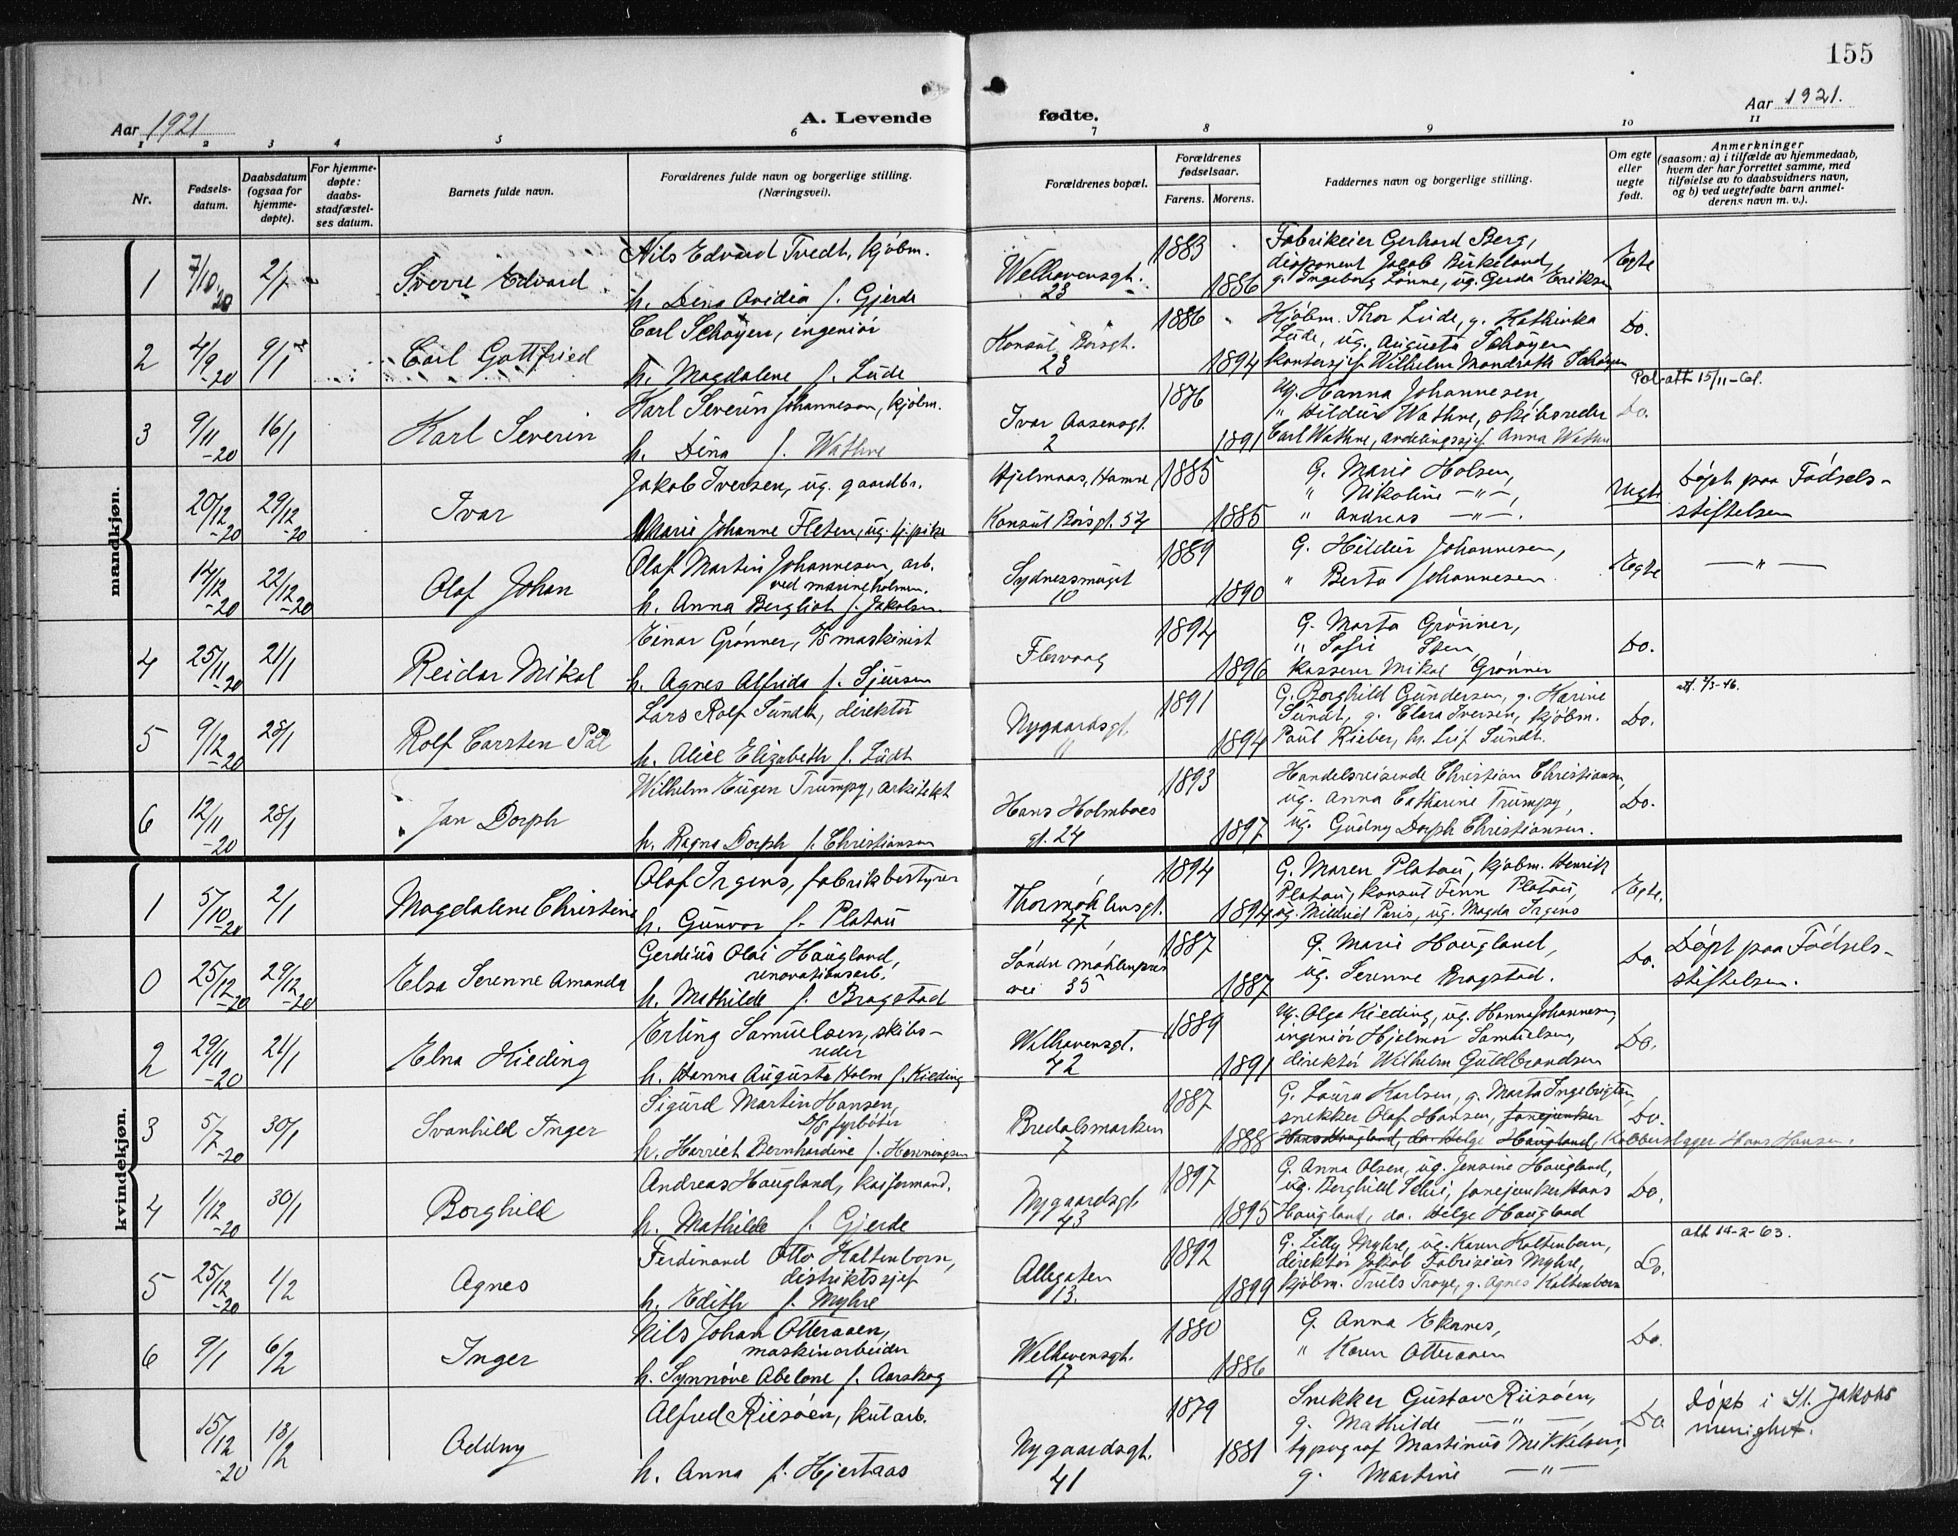 155
Aar 1921
A. Levende
fødte.
Aar 1921.
1 2 3 4 5 6 7 8 9 10 11
Nr.
Fødsels-
datum.
Daabsdatum
(ogsaa for
hjemme-
døpte).
For hjemme-
døpte:
daabs-
stadfæstel-
ses datum.
Barnets fulde navn.
Forældrenes fulde navn og borgerlige stilling.
(Næringsvei).
Forældrenes bopæl.
Forældrenes
fødselsaar.
Farens. Morens.
Faddernes navn og borgerlige stilling.
Om egte
eller
uegte
født.
Anmerkninger
(saasom: a) i tilfælde av hjemmedaab,
hvem der har forrettet samme, med
tilføielse av to daabsvidners navn,
og b) ved uegtefødte barn anmel-
derens navn m. v.).
mandkjøn.
1 7/10-20 2/1 Sverre Edvard
Nils Edvard Tvedt, kjøbm.
h. Dina Ovidia f. Gjerde
Welhavensgt.
23
1883
1886
Fabrikeier Gerhard Berg,
disponent Jacob Birkeland,
g. Ingeborg Lønne, ug. Gerda Eriksen
Egte
2 4/9-20 9/1 Carl Gottfried
Carl Schøyen, ingeniør
h. Magdalene f. Lude
Konsul Børsgt.
23
1886
1894
Kjøbm. Thor Lude, g. Kathinka
Lude, ug. Augusta Schøyen
kontorsjef Wilhelm Mandrath Schøyen
Do.
3 9/11-20 16/1 Karl Severin
Karl Severin Johannesen, kjøbm.
h. Dina f. Wathne
Ivar Aasensgt.
2
1876
1891
Ug. Hanna Johannesen,
" Hildur Wathne, skibsreder
Carl Wathne, avdelingssjef Anna Wathne
Do.
Pol-att 15/11-
20/12-20 29/12-20 Ivar
Jakob Iversen, ug. gaardbr.
Marie Johanne Fleten, ug. tj.pike
Hjelmaas, Hamre
Konsul Børsgt. 54
1885
1885
G. Marie Holsen,
" Nikoline —"—,
" Andreas —"—.
Uegte
Døpt paa Fødsels-
stiftelsen
14/12-20 22/12-20 Olaf Johan
Olaf Martin Johannesen, arb.
ved marineholmen.
h. Anna Bergliot f. Jakobsen.
Sydnessmuget
10
1889
1890
G. Hildur Johannesen,
" Berta Johannesen.
Egte
—"—
4 25/11-20 21/1 Reidar Mikal
Einar Grønner, D/S maskinist
h. Agnes Alfrida f. Sjursen
Flesvaag
1894
1896
G. Marta Grønner,
" Sofie Sten,
kasserer Mikal Grønner
Do.
5 9/12-20 23/1 Rolf Carsten Pål
Lars Rolf Sundt, direktør
h. Alice Elizabeth f. Lüdt
Nygaardsgt.
11
1891
1894
G. Borghild Gundersen, g. Harine
Sundt, g. Clara Iversen, kjøbm.
Paul Rieber, hr. Leif Sundt.
Do.
att. 4/3-46.
6 12/11-20 23/1 Jan Dorph
Wilhelm Eugen Trumpy, arkitekt
h. Ragna Dorph f. Christiansen
Hans Holmboes
gt. 24
1893
1897
Handelsreisende Christian Christiansen,
ug. Anna Catharine Trumpy,
ug. Gudny Dorph Christiansen.
Do.
kvindekjøn.
1 5/10-20 2/1 Magdalene Christine
Olaf Irgens, fabrikbestyrer
h. Gunvor f. Platou
Thormøhlensgt.
47
1894
1894
G. Maren Platou, kjøbm. Henrik
Platou, konsul Finn Platou,
ug. Mildrid Paris, ug. Magda Irgens
Egte.
0 25/12-20 29/12-20 Elsa Serenne Amanda
Gerdius Olai Haugland,
renovationsarb.
h. Mathilde f. Bragstad
Søndre Møhlenpris
vei 35
1887
1887
G. Marie Haugland,
ug. Serenne Bragstad.
Do.
Døpt paa Fødsels-
stiftelsen.
2 29/11-20 21/1 Elna Kieding
Erling Samuelsen, skibs-
reder
h. Hanna Augusta Holm f. Kieding
Welhavensgt.
42
1889
1891
Ug. Olga Kieding, ug. Hanna Johannesen,
ingeniør Hjalmar Samuelsen,
direktør Wilhelm Guldbrandsen
Do.
3 5/7-20 30/1 Svanhild Inger
Sigurd Martin Hansen,
D/S fyrbøter
h. Harriet Bernhardine f. Henningsen
Bredalsmarken
7
1887
1888
G. Laura Karlsen, g. Marta Ingebrigtsen,
snekker Olaf Hansen, fanejunker
Hans Haugland, do. Helge Haugland, Kobberslager Hans Hansen.
Do.
4 1/12-20 30/1 Borghild
Andreas Haugland, kaiformand.
h. Mathilde f. Gjerde
Nygaardsgt.
43
1897
1895
G. Anna Olsen, ug. Jensine Haugland,
ug. Berghild Selvi, fanejunker Hans
Haugland, do. Helge Haugland
Do.
5 25/12-20 1/2 Agnes
Ferdinand Otto Kaltenborn,
distriktssjef
h. Edith f. Myhre
Allegaten
13.
1892
1899
G. Lilly Myhre, ug. Karen Kaltenborn,
direktør Jakob Fabrizius Myhre,
kjøbm. Truls Troye, g. Agnes Kaltenborn
Do.
att 14-2-63.
6 9/1 6/2 Inger
Nils Johan Otteraaen,
maskinarbeider
h. Synnøve Abelone f. Aarskog
Welhavensgt.
17
1880
1886
G. Anna Ekanes,
" Karen Otteraaen
Do.
15/12-20 13/2 Oddny
Alfred Riisøen, kularb.
h. Anna f. Hjertaas
Nygaardsgt.
41
1879
1881
Snekker Gustav Riisøen,
g. Mathilde —"—,
typograf Martinus Mikkelsen,
g. Martine —"—
Do
Døpt i St. Jakobs
menighet.